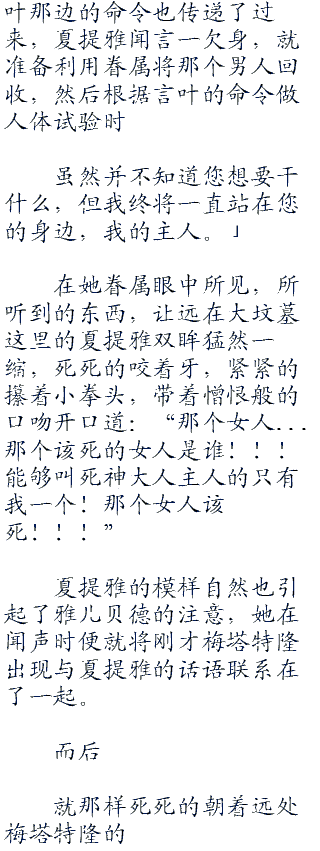 叶那边的命令也传递了过
来，夏提雅闻言一欠身，就
准备利用眷属将那个男人回
收，然后根据言叶的命令做
人体试验时
虽然并不知道您想要干
什么，但我终将一直站在您
的身边，我的主人。」
在她眷属眼中所见，所
听到的东西，让远在大坟墓
这里的夏提雅双眸猛然一
缩，死死的咬着牙，紧紧的
攥着小拳头，带着憎恨般的
口吻开口道：“那个女人...
那个该死的女人是谁！！！
能够叫死神大人主人的只有
我一个！那个女人该
死！！！”
夏提雅的模样自然也引
起了雅儿贝德的注意，她在
闻声时便就将刚才梅塔特隆
出现与夏提雅的话语联系在
了一起。
而后
就那样死死的朝着远处
梅塔特隆的